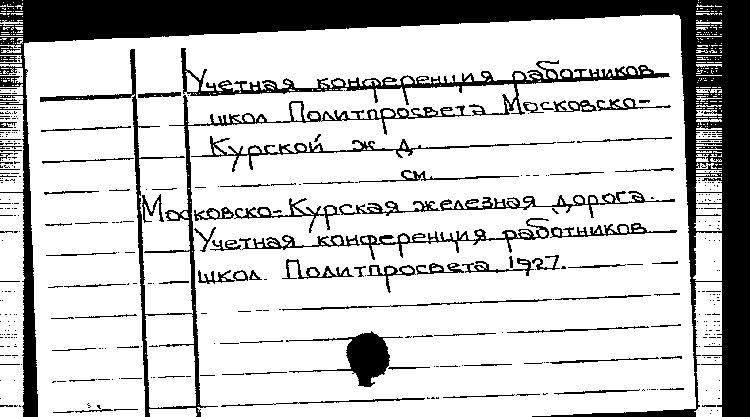 Учетная конференция работников
школ Политпросвета Московско-
Курской ж. д.
см.
Московско-Курская железная дорога.
Учетная конференция работников
школ Политпросвета. 1927.